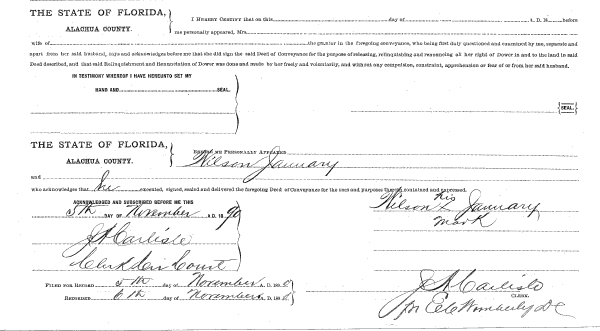 THE STATE OF FLORIDA,
ALACHUA COUNTY.
I HEREBY CERTIFY that on this day of A. D. 18 before
me personally appeared, Mrs.
wife of the grantor in the foregoing conveyance, who being first duly questioned and examined by me, separate and
apart from her said husband, says and acknowledges before me that she did sign the said Deed of Conveyance for the purpose of releasing, relinquishing and renouncing all her right of Dower in and to the land in said
Deed described, and that said Relinquishment and Renunciation of Dower was done and made by her freely and voluntarily, and without any compulsion, constraint, apprehension or fear of or from her said husband.
IN TESTIMONY WHEREOF I HAVE HEREUNTO SET MY
HAND AND SEAL.
SEAL.
THE STATE OF FLORIDA,
ALACHUA COUNTY.
BEFORE ME PERSONALLY APPEARED
Wilson January
and
who acknowledges that he executed, signed, sealed and delivered the foregoing Deed of Conveyance for the uses and purposes therein contained and expressed.
ACKNOWLEDGED AND SUBSCRIBED BEFORE ME THIS
5th DAY OF November A. D. 1890
J A Carlisle
Clerk Cir Court
his
Wilson January
mark
FILED FOR RECORD 5th day of November A. D. 18
RECORDED 6th day of November A. D. 18
J A Carlisle
CLERK.
pr E C Wimberly D C